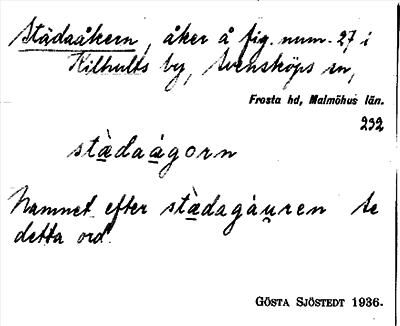 Städaåkern, åker å fig. num. 27 i
Kilhults by, Svensköps sn,
Frosta hd, Malmöhus län.
232
stàdaágorn
Namnet efter stàdagàu̯ren se
detta ord.
GÖSTA SJÖSTEDT 1936.